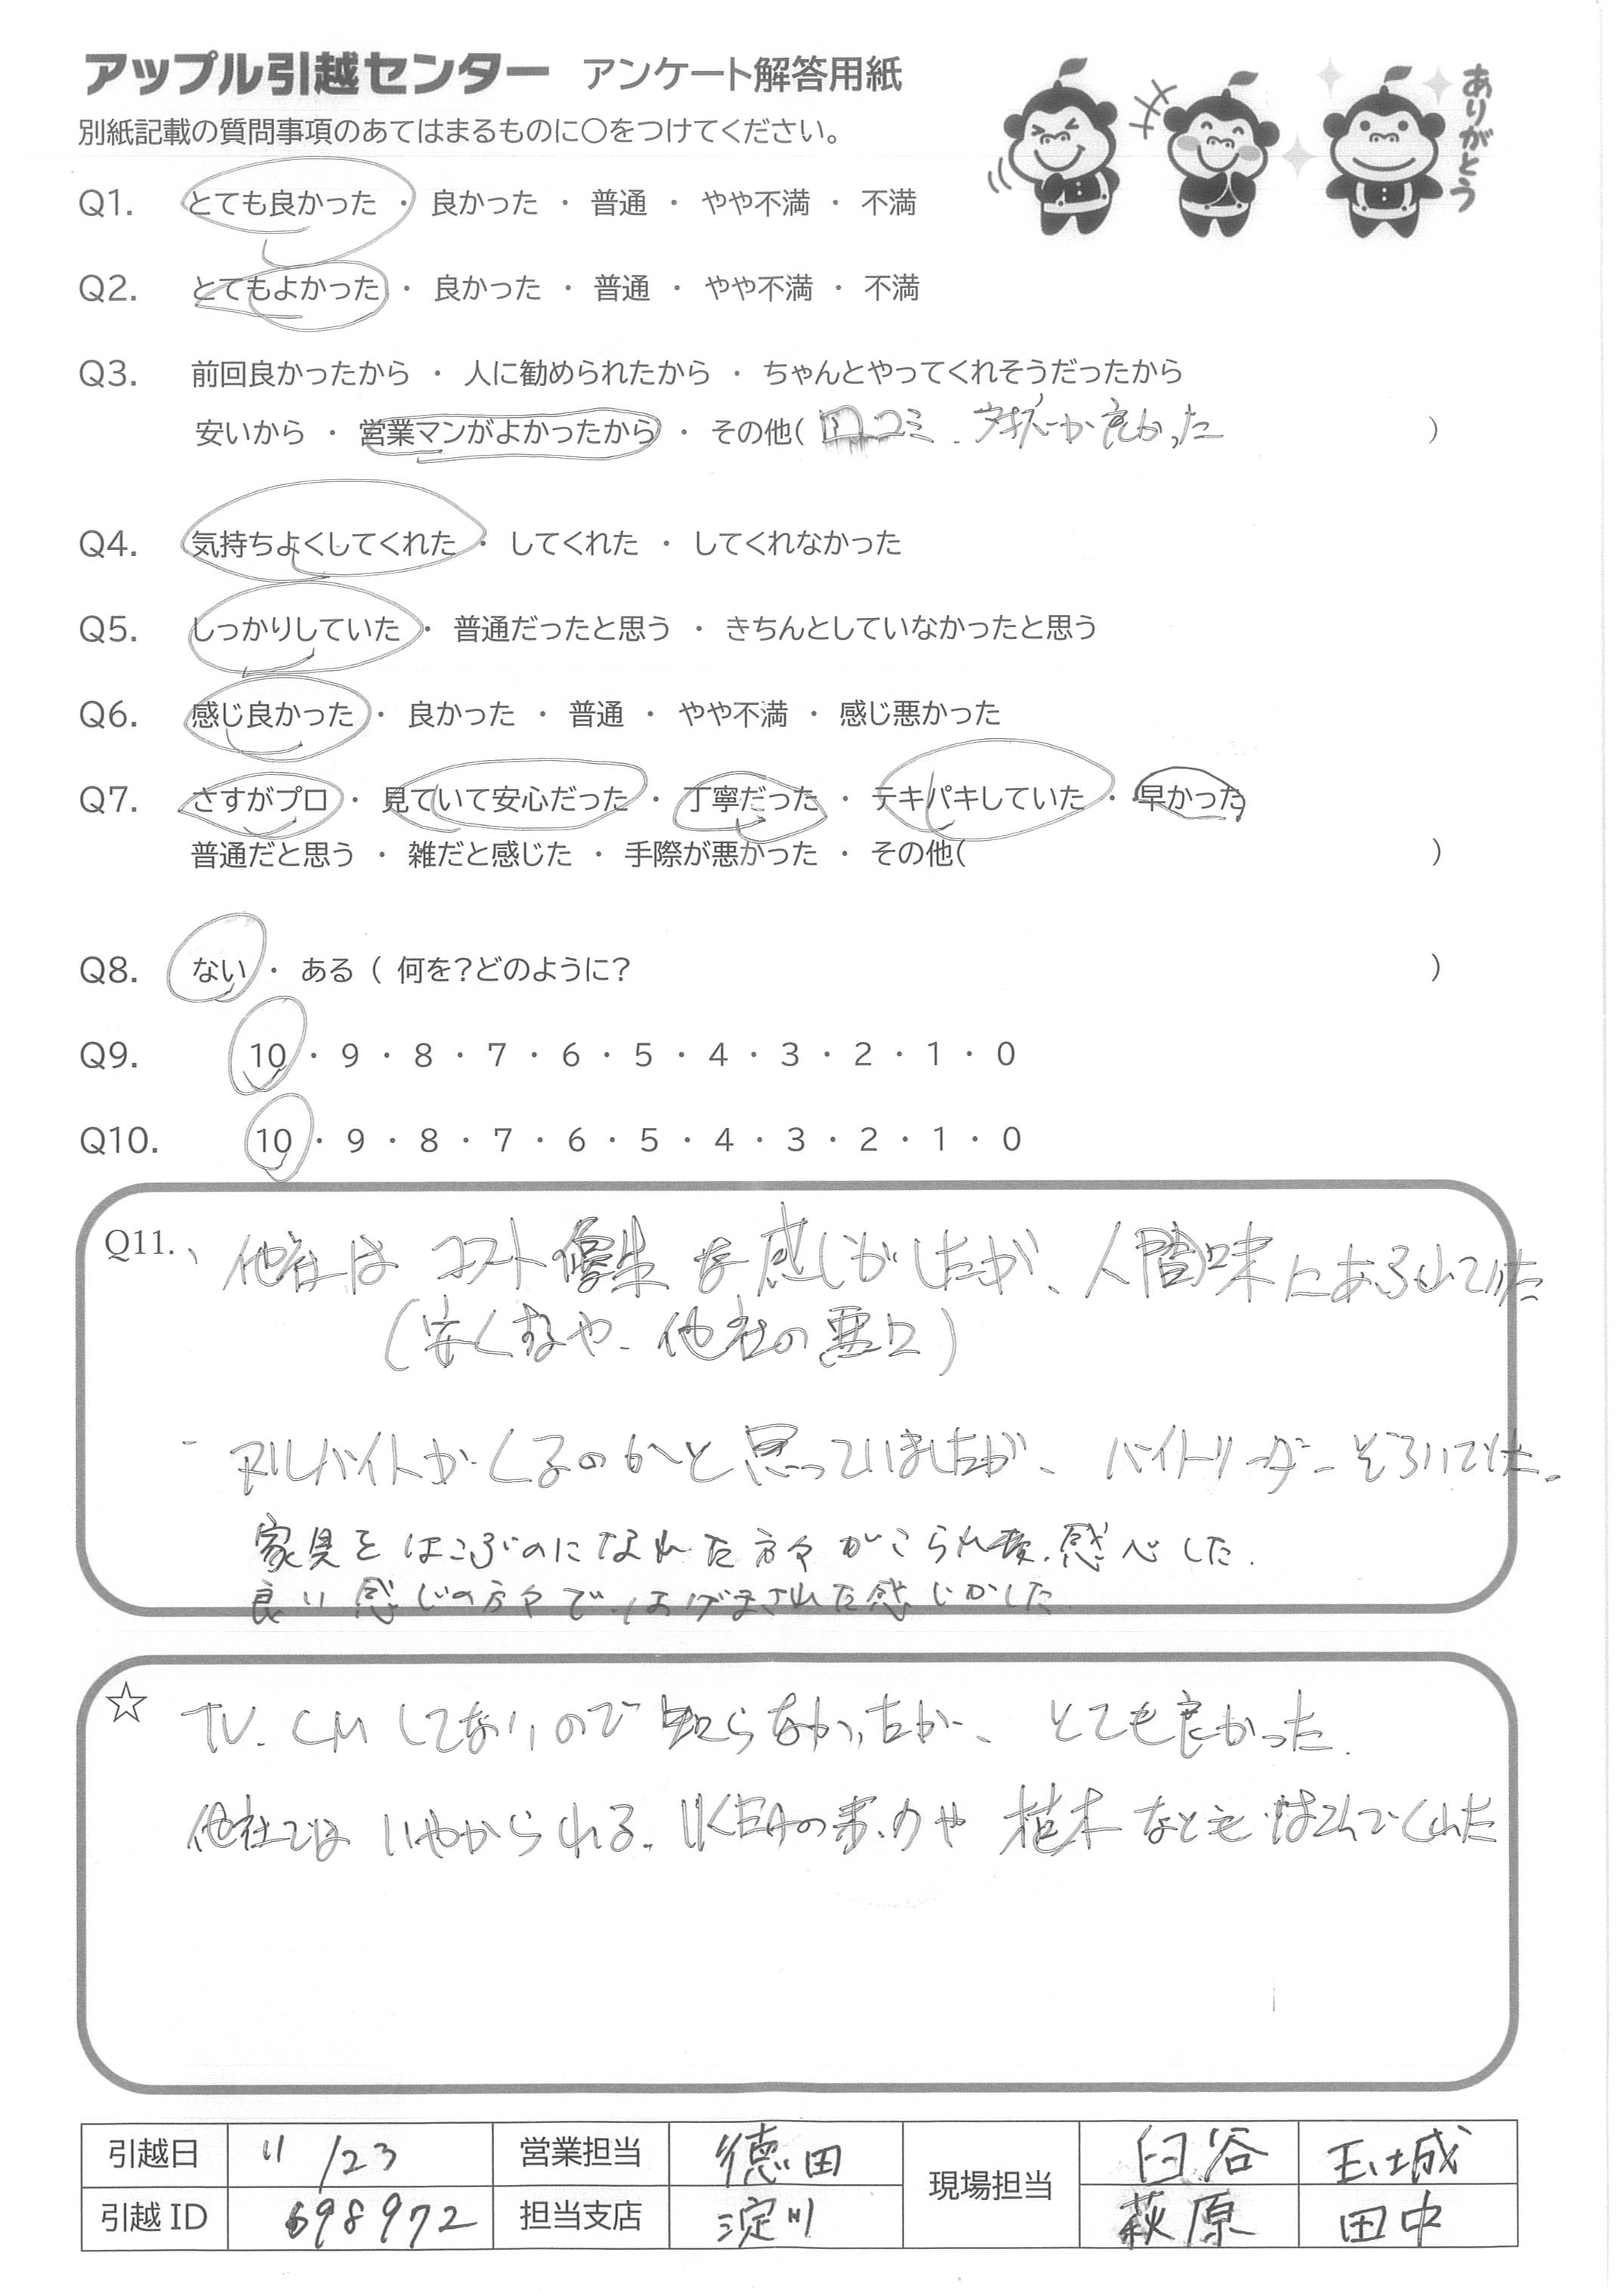 アップル引越センター アンケート解答用紙
別紙記載の質問事項のあてはまるものに○をつけてください。
ありがとう
Q1. とても良かった ・ 良かった ・ 普通 ・ やや不満 ・ 不満
Q2. とてもよかった ・ 良かった ・ 普通 ・ やや不満 ・ 不満
Q3. 前回良かったから ・ 人に勧められたから ・ ちゃんとやってくれそうだったから
安いから ・ 営業マンがよかったから ・ その他( 口コミ 対応が良かった )
Q4. 気持ちよくしてくれた ・ してくれた ・ してくれなかった
Q5. しっかりしていた ・ 普通だったと思う ・ きちんとしていなかったと思う
Q6. 感じ良かった ・ 良かった ・ 普通 ・ やや不満 ・ 感じ悪かった
Q7. さすがプロ ・ 見ていて安心だった ・ 丁寧だった ・ テキパキしていた ・ 早かった
普通だと思う ・ 雑だと感じた ・ 手際が悪かった ・ その他( )
Q8. ない ・ ある ( 何を?どのように? )
Q9. 10 ・ 9 ・ 8 ・ 7 ・ 6 ・ 5 ・ 4 ・ 3 ・ 2 ・ 1 ・ 0
Q10. 10 ・ 9 ・ 8 ・ 7 ・ 6 ・ 5 ・ 4 ・ 3 ・ 2 ・ 1 ・ 0
Q11. 、他社はコスト優先な感じがしたが、人間味にあふれていた
(安くするや、他社の悪口)
- アルバイトがくるのかと思っていましたが、バイトリーダーそろいでした。
家具をはこぶのになれた方々がこられ、感心した.
良い感じの方々で、はげまされた感じがした
☆ TV. CMしてないので知らなかったが、とても良かった.
他社ではいやがられる. IKEAのや植木などもはこんでくれた
引越日 11/23 営業担当 徳田 現場担当 臼谷 玉城
引越ID 698972 担当支店 淀川 萩原 田中